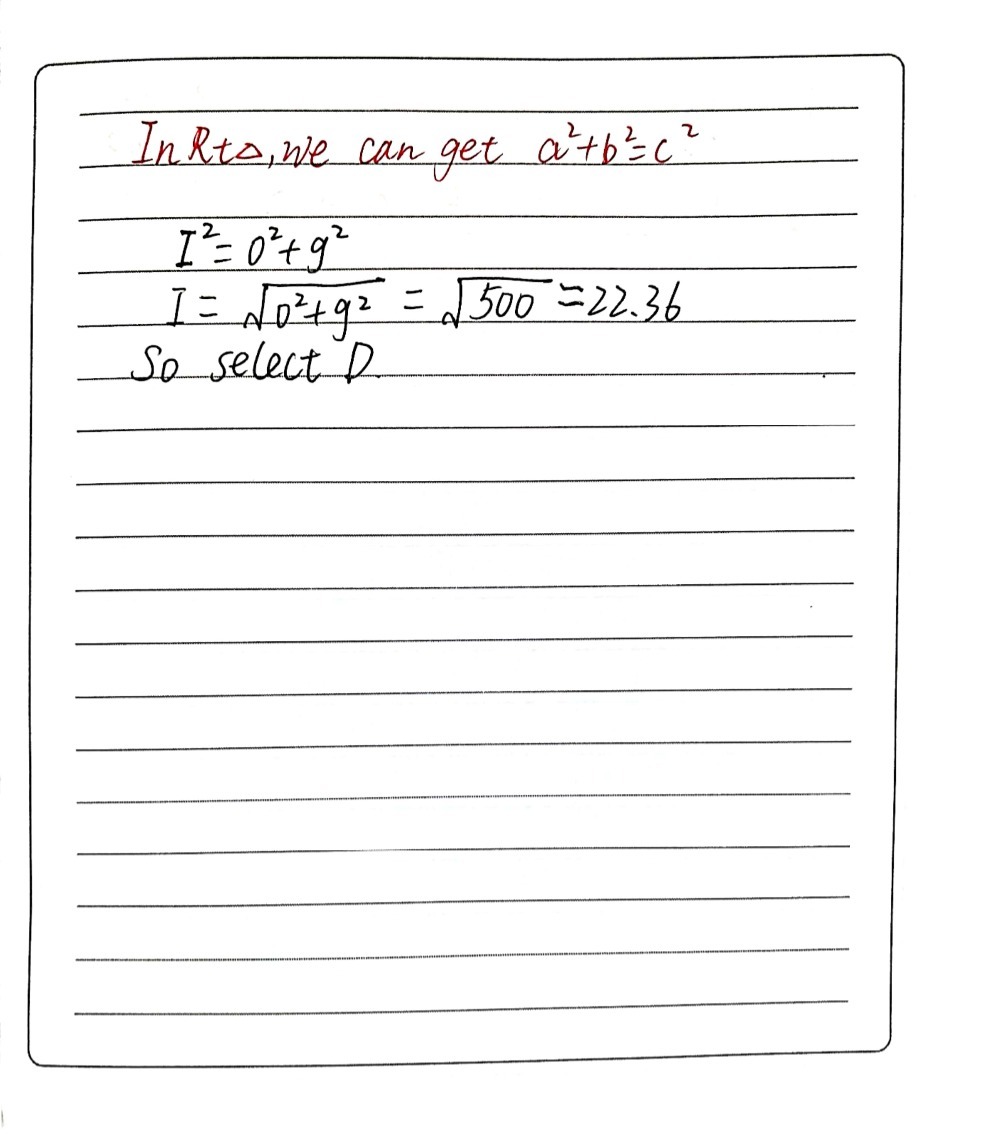 In Rt△, we can get a²+b²=c²
I²=0²+g²
I=√0²+g²=√500=22.36
So select D.